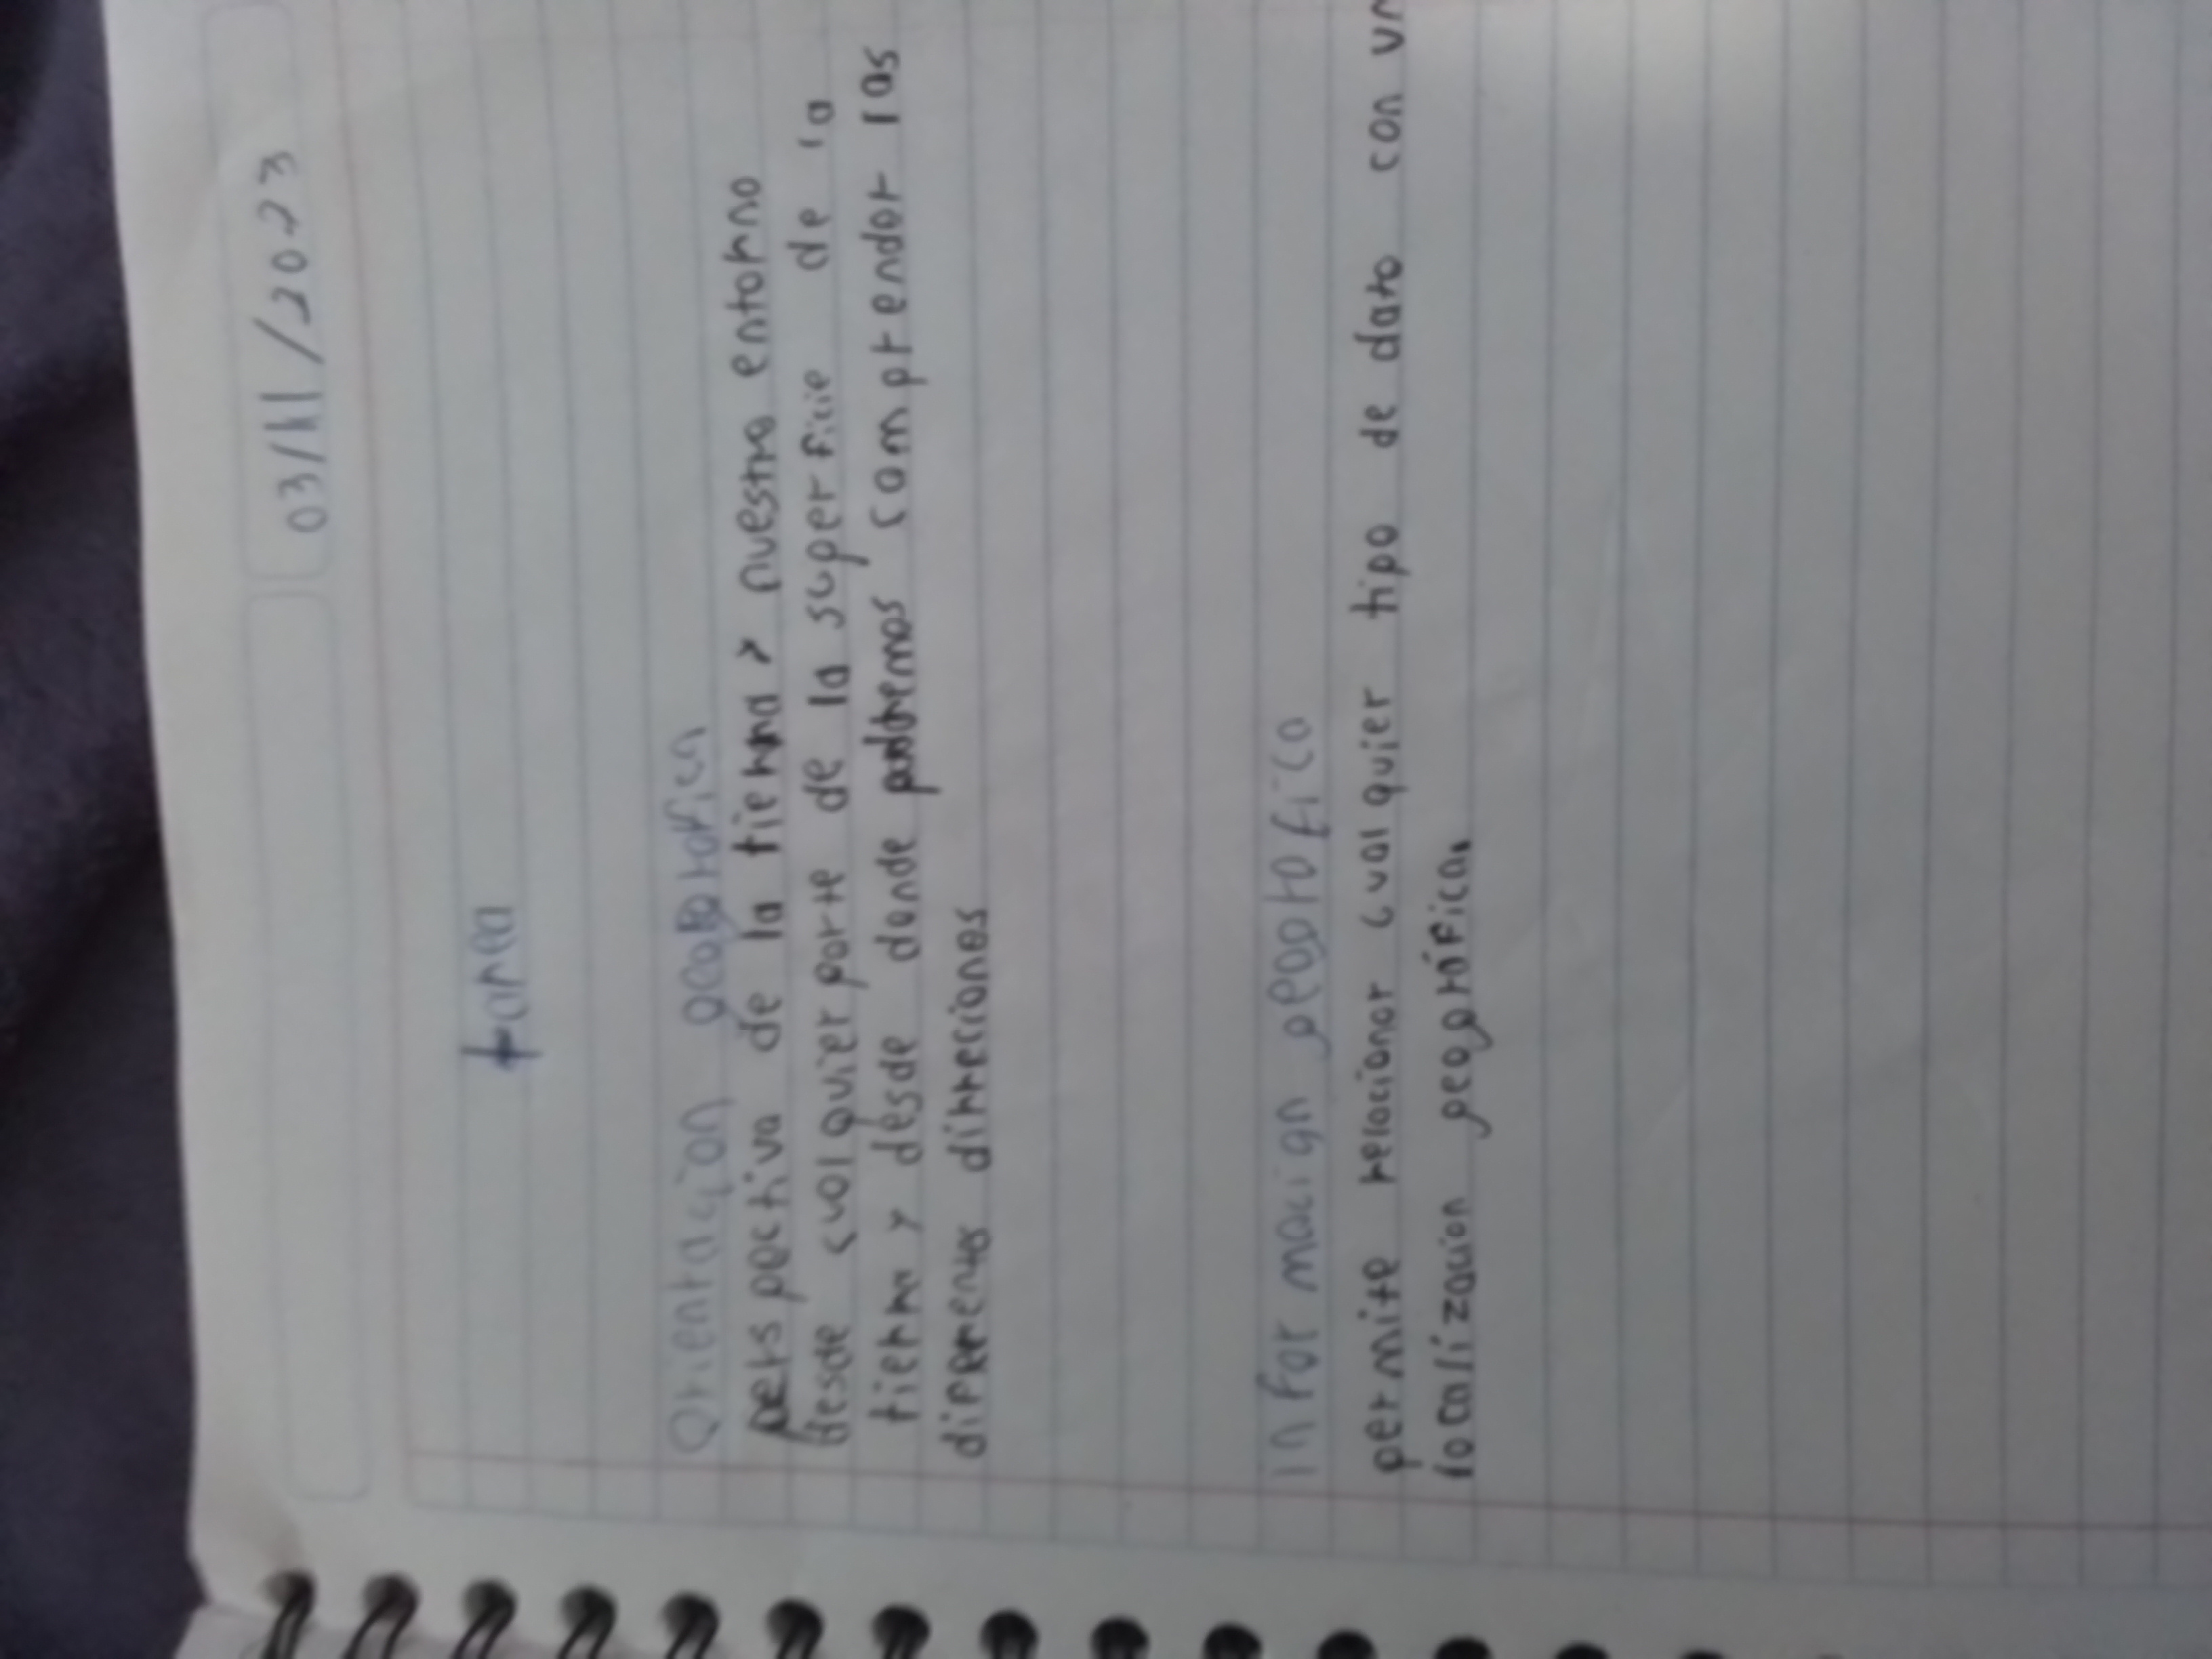 03/11/2023
tarea
Orientación geografica
perspectiva de la tierra y nuestro entorno
desde cualquier parte de la superficie de la
tierra y desde donde podremos comprender las
diferentes direcciones
informacion geografico
permite relacionar cualquier tipo de dato con un
localizacion geográfica.